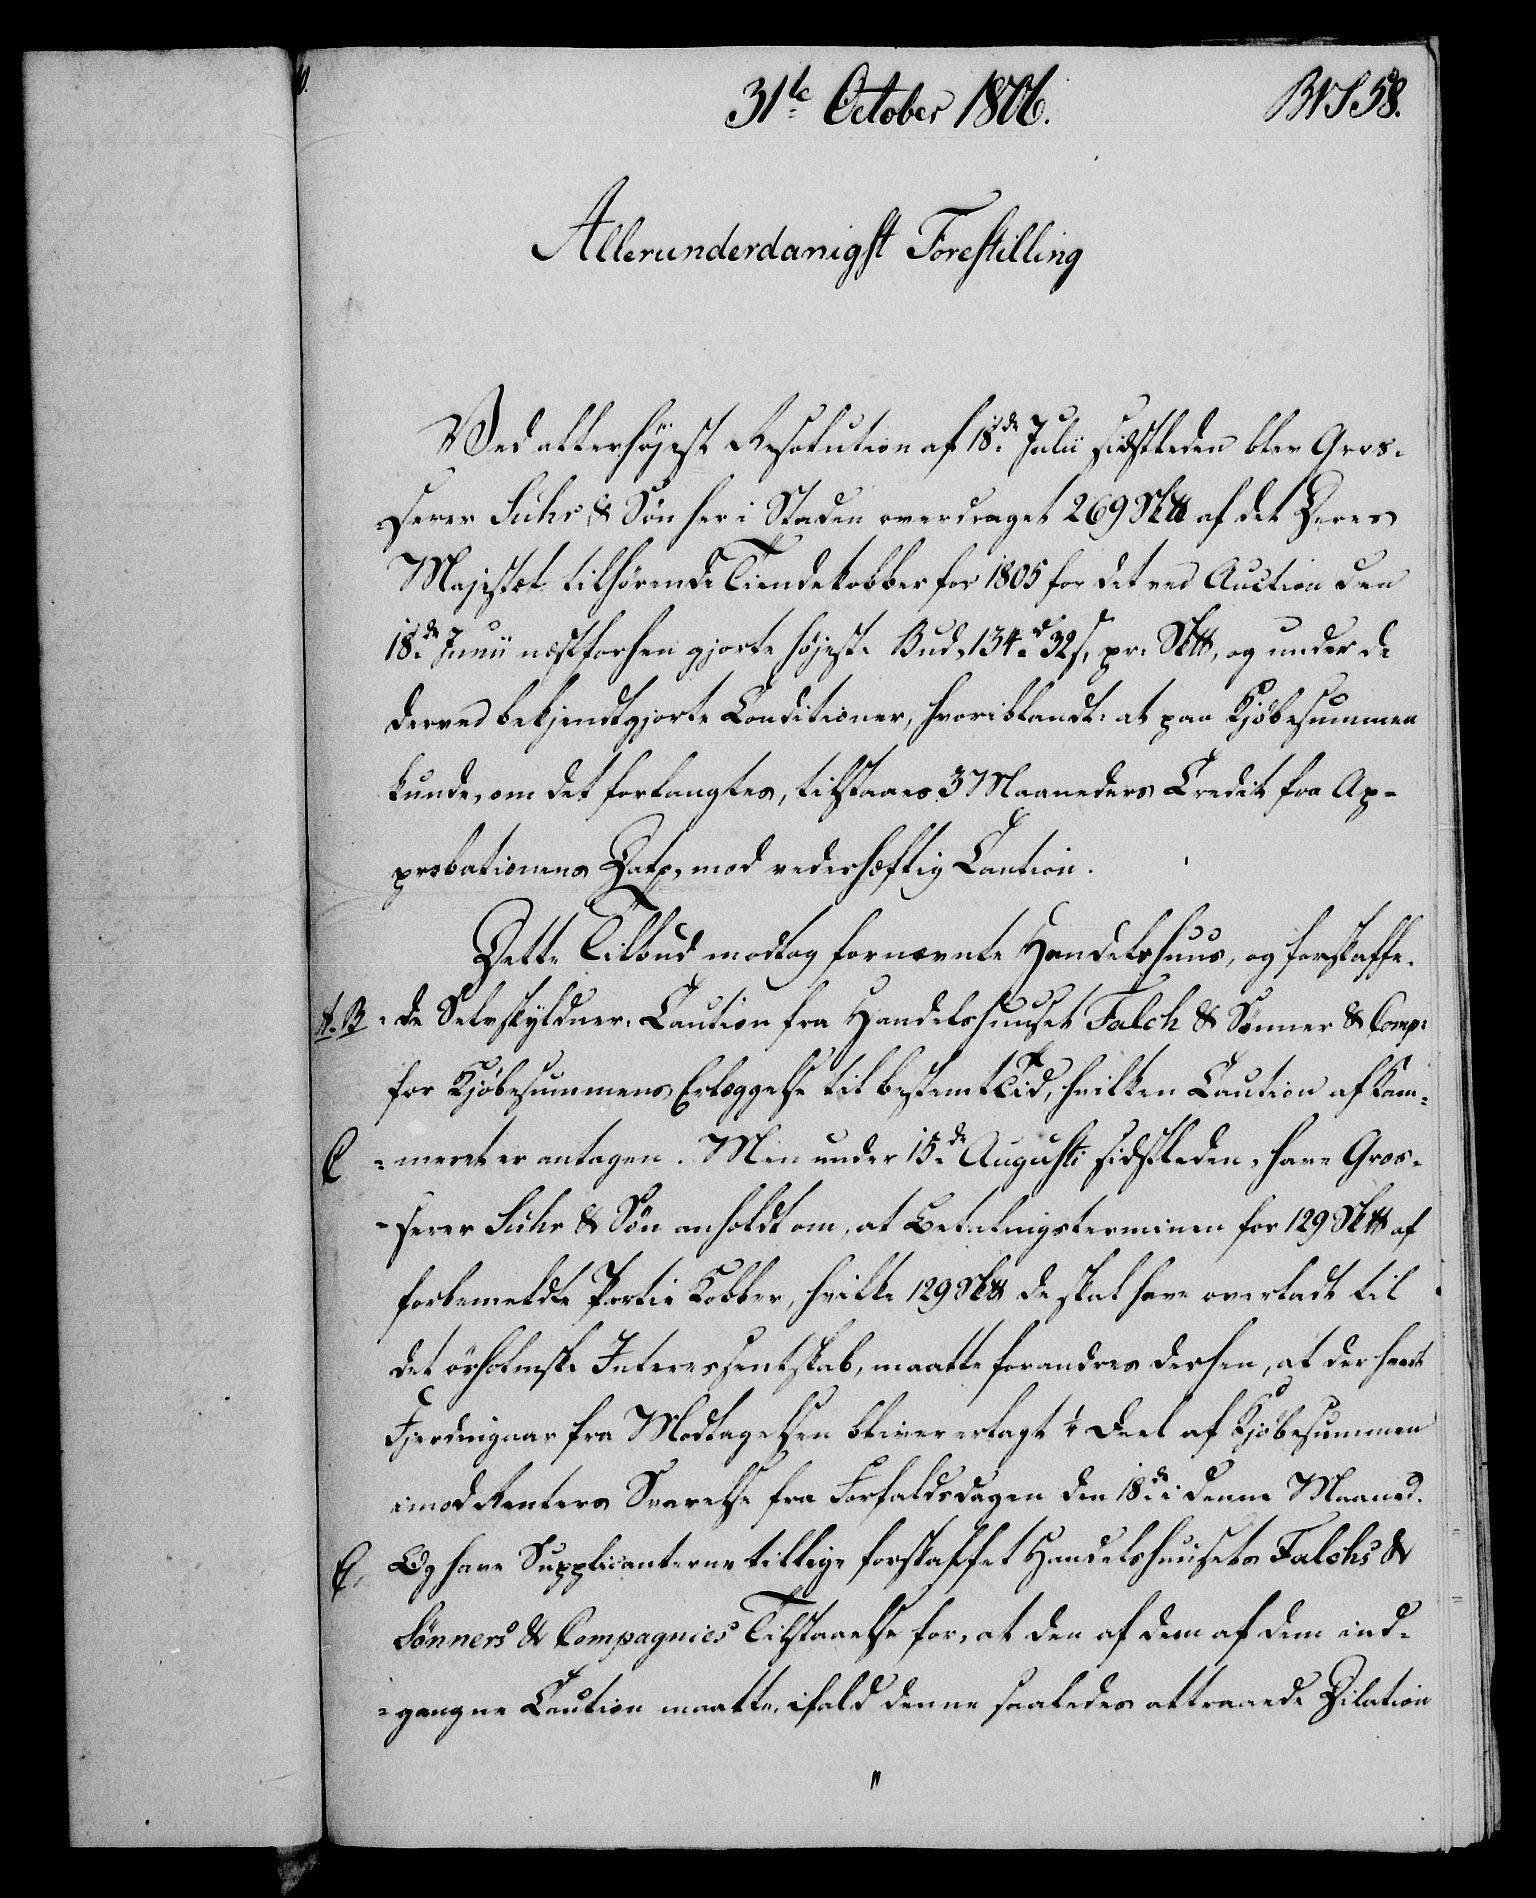 31te October 1806.
BVS 58.
Allerunderdanigst Forestilling
Ved allerhøjest Resolution af 18de Julii sidstleden blev Gros-
serer Suhr & Søn her i Staden overdraget 269 Sk℔ af det Deres
Majestæt tilhørende Tiendekobber for 1805 for det ved Auction den
18de Junii næstforhen gjorte højeste Bud, 134 rd 32 s, pr. Sk℔, og under de
derved bekjendtgjorte Conditioner, hvoriblandt: at paa Kjøbesummen
kunde, om det forlangtes, tilstaaes 3 Maaneders Credit fra Ap-
probationens Dato, mod vederhæftig Caution.
Dette Tilbud modtog fornævnte Handelshuus, og forskaffe-
A. B
-de Selvskyldner-Caution fra Handelshuuset Falch & Sønner & Comp:
for Kjøbesummens Erlæggelse til bestemt Tid, hvilken Caution af Kam-
C
-meret er antagen. Men under 15de Augusti sidstleden, have Gros-
-serer Suhr & Søn anholdt om, at Betalingsterminen for 129 Sk℔ af
forbemeldte Partie Kobber, hvilke 129 Sk℔ de skal have overladt til
det ørholmske Interessentskab, maatte forandres derhen, at der hvert
Fjerdingaar fra Modtagelsen bliver erlagt ¼ Deel af Kjøbesummen
imod Renters Svarelse fra Forfaldsdagen den 18de i denne Maaned.
C,
Og have Supplicanterne tillige forskaffet Handelshuusets Falchs &
Sønners & Compagnies Tilstaaelse for, at den af dem af dem ind-
-gangne Caution maatte, ifald denne saaledes attraaede Dilation
"